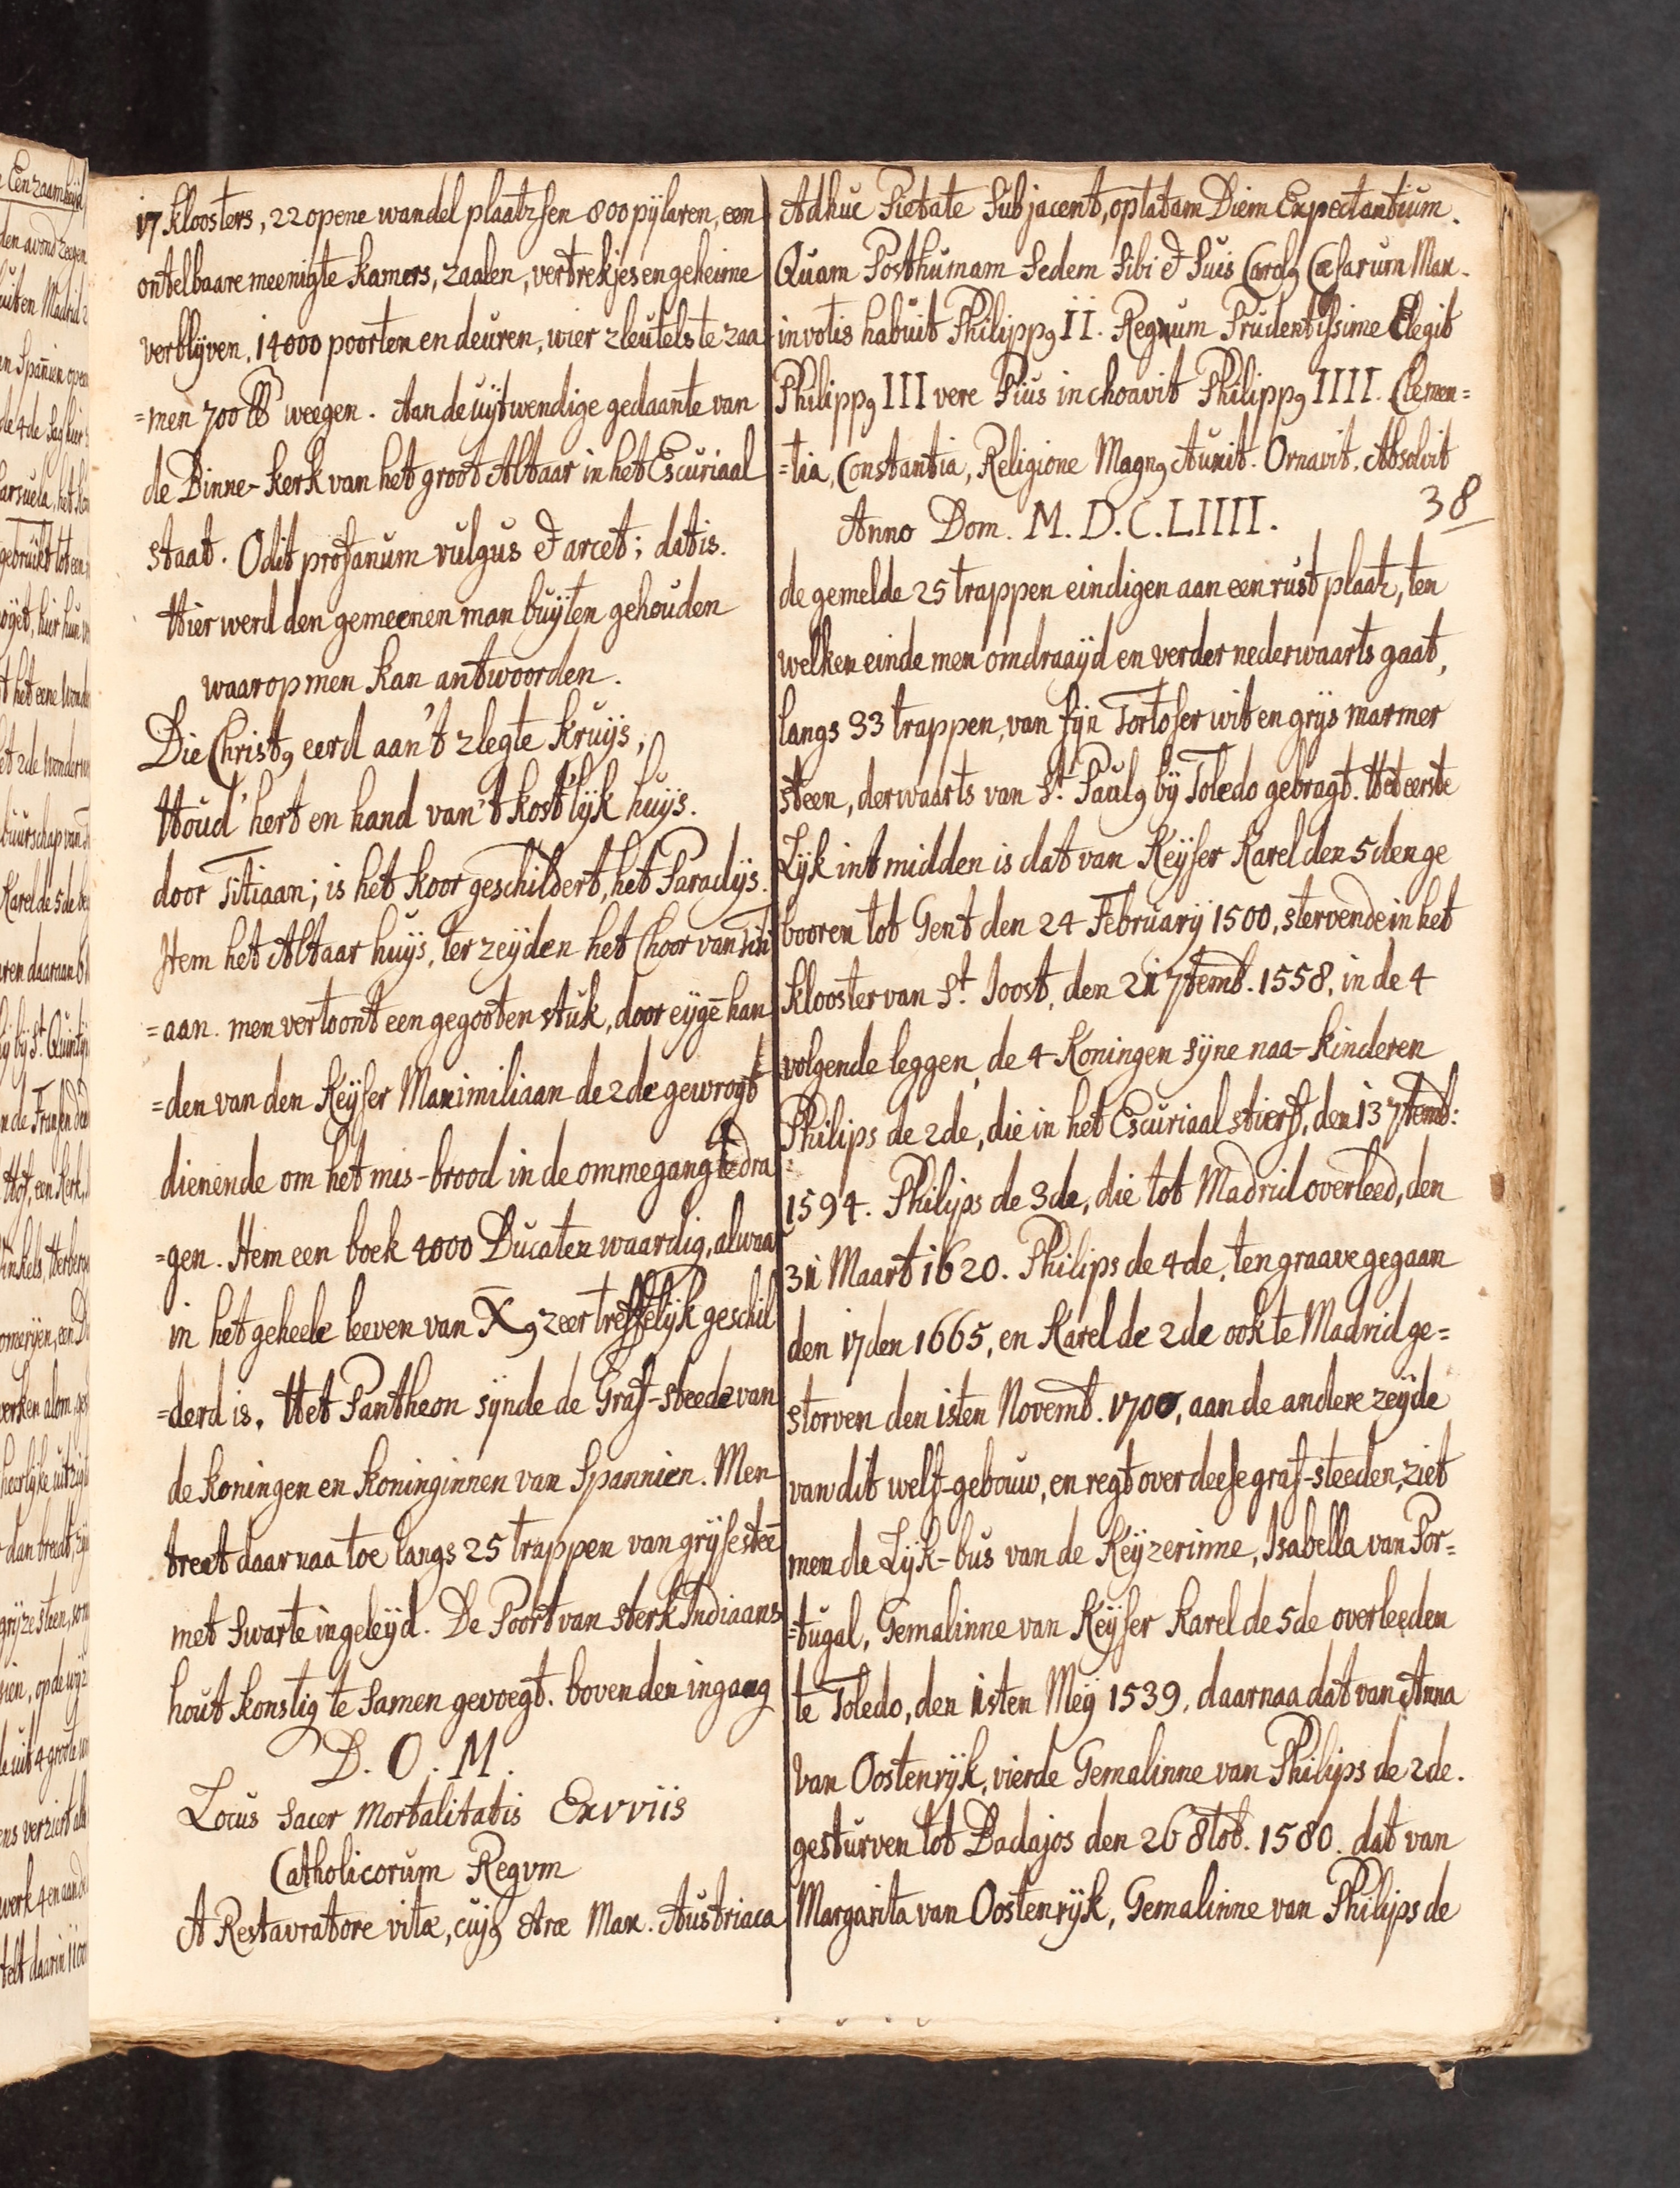 17 kloosters, 22 opene wandel plaatzsen 800 pÿlaren, een
ontelbaare meenigte kamers, zaalen, vertrekjes en geheime
verblijven, 14000 poorten en deuren, wier zleutels te zaa
=men 700 lb weegen. Aan de uÿtwendige gedaante van
de Binne-kerk van het groot Altaar in het Escuriaal
staat. Odit profanum vulgus & arcet; dat is.
Hier werd den gemeenen man buÿten gehouden
waar op men kan antwoorden.
Die Christ9 eerd aan 't zlegte Kruÿs,
Houd' hert en hand van 't kost'lÿk huÿs.
door Titiaan; is het koor geschildert, het Paradÿs.
Item het Altaar huÿs, ter zeÿden het Choor van Titi
=aan. men vertoont een gegooten stuk, door eÿgē han
=den van den Keÿser Maximiliaan de 2de gewrogt
dienende om het mis-brood in de ommegang te dra
=gen. Item een boek 4000 Ducaten waardig, alwaar
in het geheele leeven van X9 zeer treffelÿk geschil
=derd is. Het Pantheon sÿnde de Graf-steede van
de koningen en koninginnen van Spannien. Men
treet daar naa toe langs 25 trappen van grÿse steē
met swarte ingeleÿd. De Poort van sterk Indiaans
hout konstig te samen gevoegt. boven den ingang
D. O. M.
Locus sacer Mortalitatis Exvviis
Catholicorum Regvm
A Restavratore vitæ, cuj9 Aræ Max. Austriaca
Adhuc Pietate Subjacent, optatam Diem Expectantium.
Quam Posthumam Sedem Sibi & Suis Carol9 Cæsarum Max.
in votis habuit Philipp9 II. Regnum Prudentissime Elegit
Philipp9 III vere Pius inchoavit Philipp9 IIII. Clemen=
=tia, Constantia, Religione Magn9 Auxit. Ornavit. Absolvit
Anno Dom. M. D. C. LIIII.
38
de gemelde 25 trappen eindigen aan een rust plaatz, ten
welken einde men omdraaÿd en verder nederwaarts gaat,
langs 33 trappen, van fÿn Tortoser wit en grÿs marmer
steen, derwaarts van St. Paul9 bÿ Toledo gebragt. Het eerste
Lÿk int midden is dat van Keÿser Karel den 5den ge
booren tot Gent den 24 Februarÿ 1500, stervende in het
klooster van St. Joost, den 21 7temb. 1558, in de 4
volgende leggen, de 4 Koningen sÿne naa-kinderen
Philips de 2de, die in het Escuriaal stierf, den 13 7temb:
1594. Philips de 3de, die tot Madrid overleed, den
31 Maart 1620. Philips de 4de, ten graave gegaan
den 17den 1665, en Karel de 2de ook te Madrid ge=
storven den 1sten Novemb. 1700, aan de andere zeÿde
van dit welf-gebouw, en regt over deese graf-steeden, ziet
men de Lÿk-bus van de Keÿzerinne, Isabella van Por=
=tugal, Gemalinne van Keÿser Karel de 5de overleeden
te Toledo, den 1sten Meÿ 1539, daar naa dat van Anna
van Oostenrÿk, vierde Gemalinne van Philips de 2de.
gesturven tot Badajos den 26 8tob. 1580. dat van
Margarita van Oostenrÿk, Gemalinne van Philips de